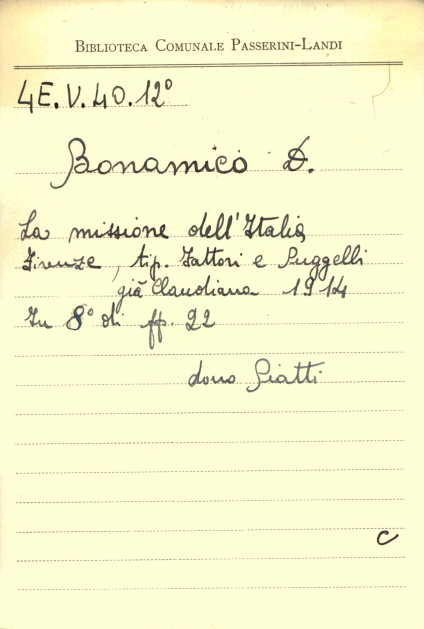 BIBLIOTECA COMUNALE PASSERINI-LANDI
4E.V.40.12°
Bonamico D.
La missione dell'Italia
Firenze, tip. Fattori e Puggelli
già Claudiana 1914
In 8° di pp. 22
dono Piatti
C